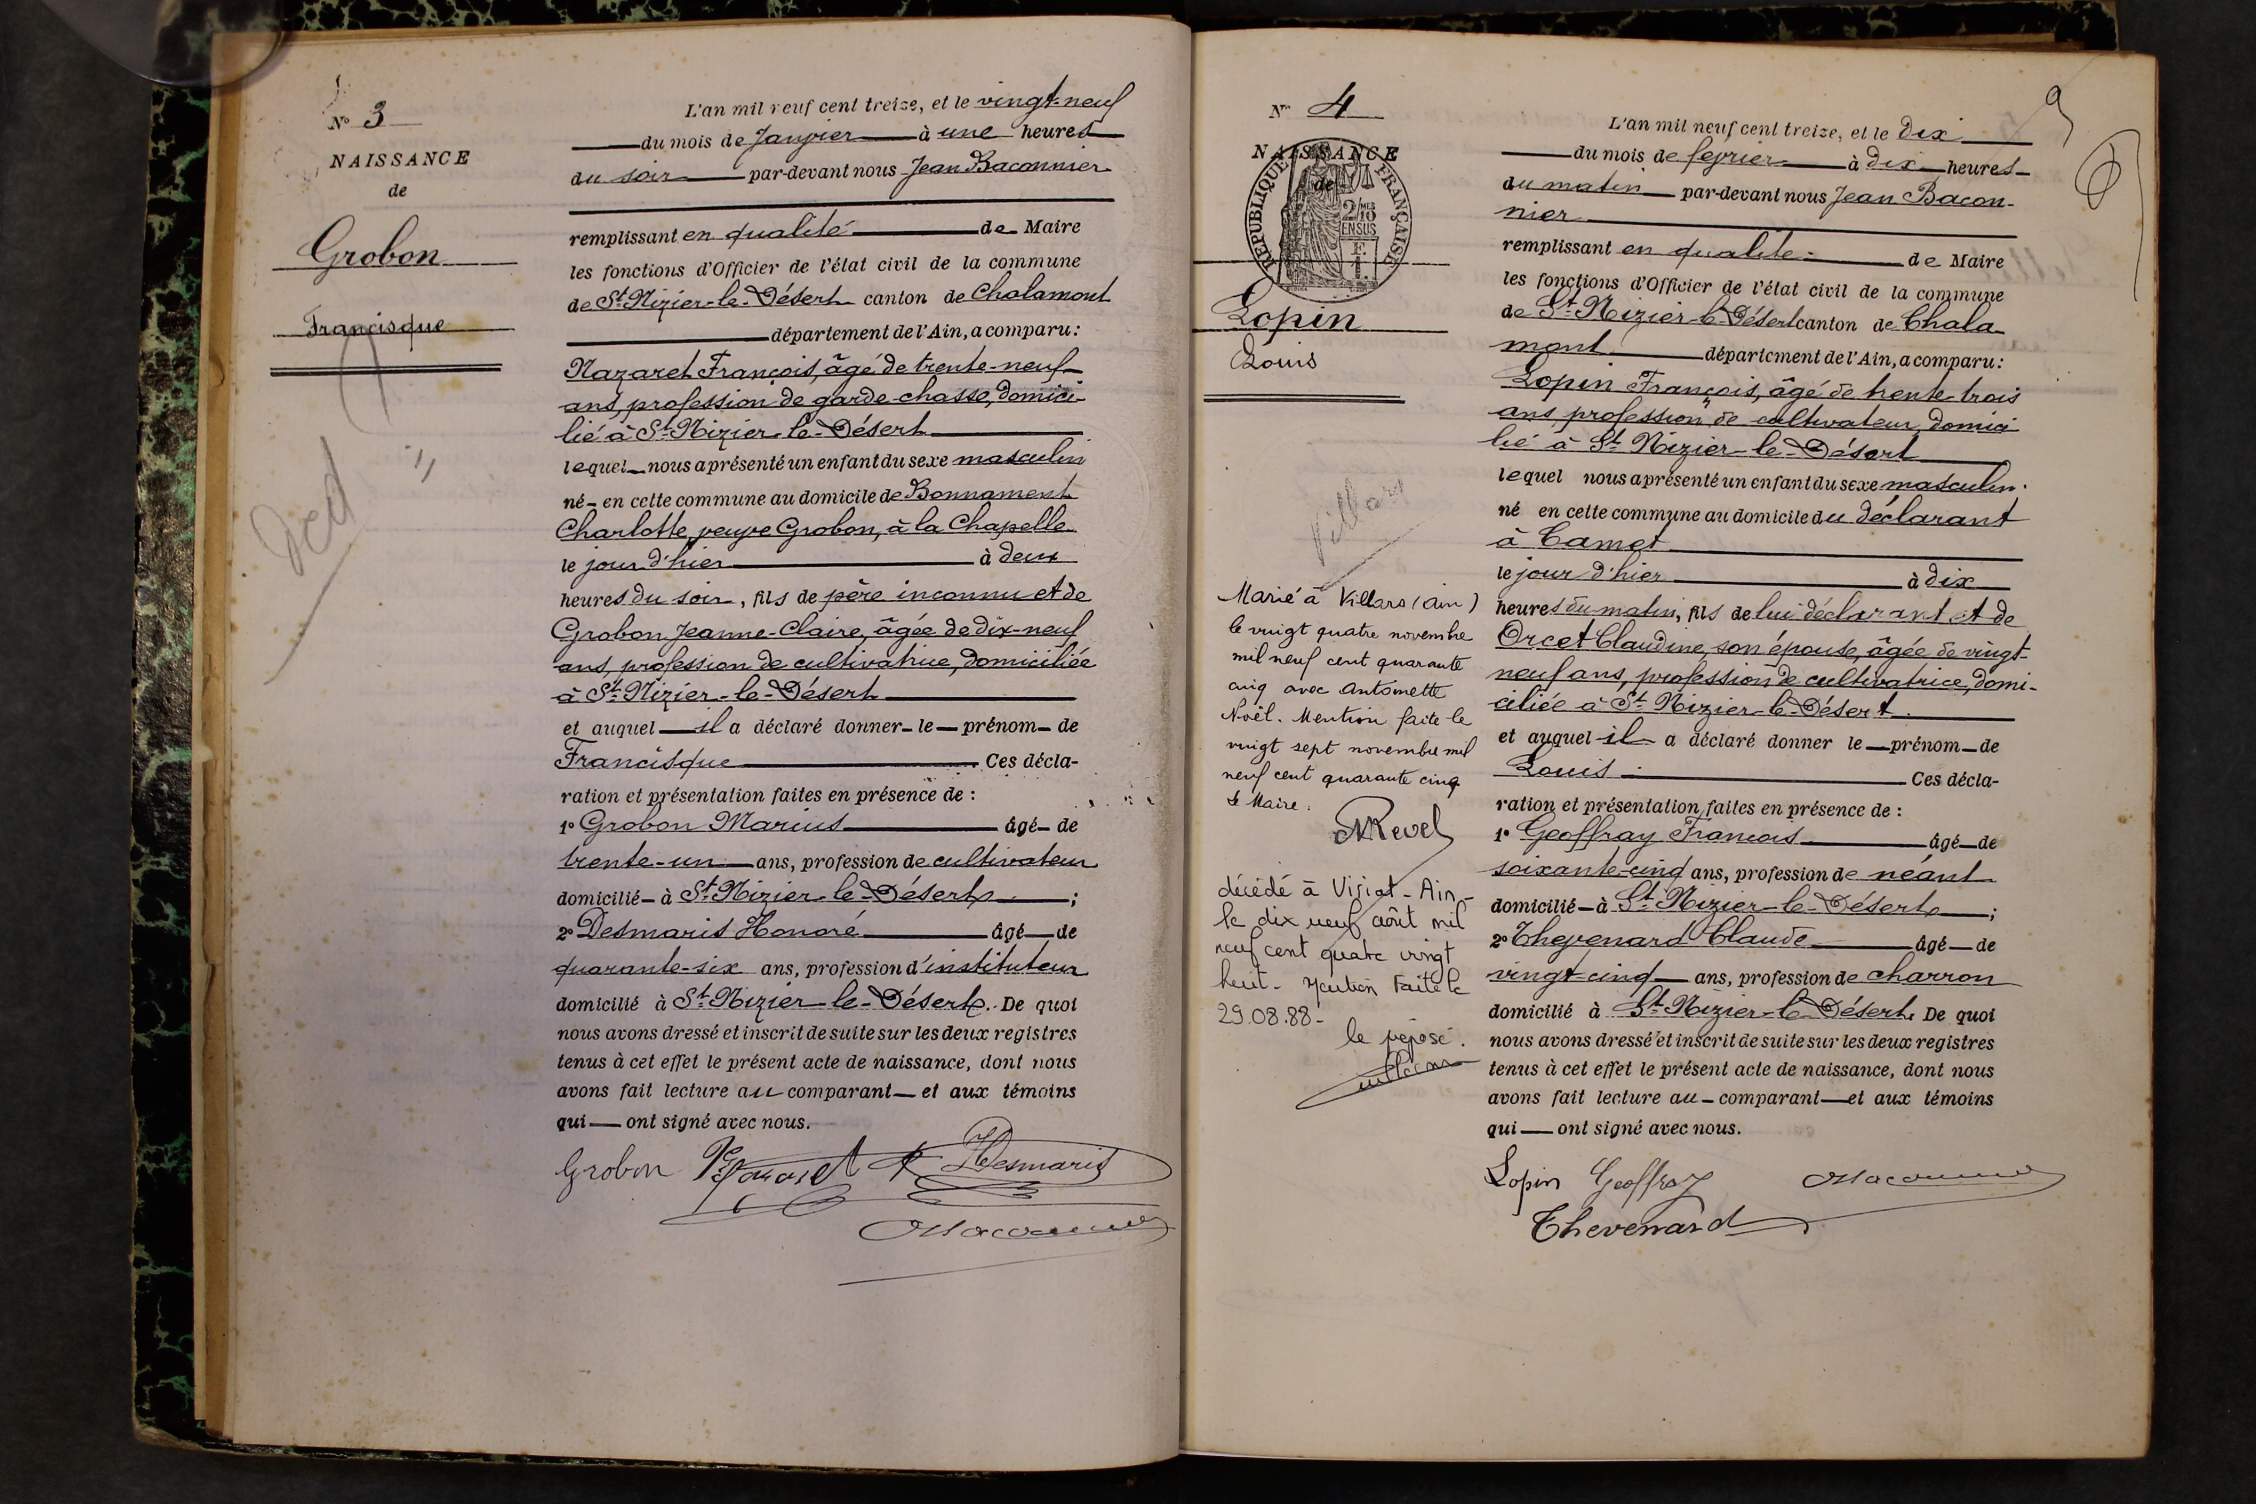 N° 3
NAISSANCE
de
Grobon
Francisque
Dcd
L'an mil neuf cent treize, et le vingt-neuf
du mois de Janvier à une heures
du soir par-devant nous Jean Baconnier
remplissant en qualité de Maire
les fonctions d'Officier de l'état civil de la commune
de St Nizier-le-Désert canton de Chalamont
département de l'Ain, a comparu:
Nazaret François, âgé de trente-neuf
ans, profession de garde-chasse, domici-
lié à St Nizier-le-Désert
lequel nous a présenté un enfant du sexe masculin
né en cette commune au domicile de Bonnament
Charlotte veuve Grobon, à la Chapelle
le jour d'hier à deux
heures du soir, fils de père inconnu et de
Grobon Jeanne-Claire, âgée de dix-neuf
ans, profession de cultivatrice, domiciliée
à St Nizier-le-Désert
et auquel il a déclaré donner le prénom de
Francisque Ces décla-
ration et présentation faites en présence de :
1° Grobon Marius âgé de
trente-un ans, profession de cultivateur
domicilié à St Nizier-le-Désert ;
2° Desmaris Honoré âgé de
quarante-six ans, profession d'instituteur
domicilié à St Nizier-le-Désert. De quoi
nous avons dressé et inscrit de suite sur les deux registres
tenus à cet effet le présent acte de naissance, dont nous
avons fait lecture au comparant et aux témoins
qui ont signé avec nous.
Grobon Nazaret HDesmaris
Baconnier
N° 4
NAISSANCE
de
RÉPUBLIQUE FRANÇAISE
2/10 MES
EN SUS
F.
1.
Lopin
Louis
Villars
Marié à Villars (Ain)
le vingt quatre novembre
mil neuf cent quarante
cinq avec Antoinette
Noël. Mention faite le
vingt sept novembre mil
neuf cent quarante cinq
Le Maire.
Revel
décédé à Viriat - Ain -
le dix neuf août mil
neuf cent quatre vingt
huit - Mention Faite le
29.08.88 -
le préposé.
9
L'an mil neuf cent treize, et le dix
du mois de février à dix heures
du matin par-devant nous Jean Bacon-
nier
remplissant en qualité de Maire
les fonctions d'Officier de l'état civil de la commune
de St Nizier-le-Désert canton de Chala
mont département de l'Ain, a comparu:
Lopin François, âgé de trente trois
ans, profession de cultivateur, domici
lié à St Nizier-le-Désert
lequel nous a présenté un enfant du sexe masculin.
né en cette commune au domicile du déclarant
à Camet
le jour d'hier à dix
heures du matin, fils de lui déclarant et de
Orcet Claudine, son épouse, âgée de vingt-
neuf ans, profession de cultivatrice, domi-
ciliée à St Nizier-le-Désert.
et auquel il a déclaré donner le prénom de
Louis Ces décla-
ration et présentation faites en présence de :
1° Geoffray Francois âgé de
soixante-cinq ans, profession de néant
domicilié à St Nizier-le-Désert ;
2° Thevenard Claude âgé de
vingt-cinq ans, profession de charron
domicilié à St Nizier-le-Désert. De quoi
nous avons dressé et inscrit de suite sur les deux registres
tenus à cet effet le présent acte de naissance, dont nous
avons fait lecture au comparant et aux témoins
qui ont signé avec nous.
Lopin Geoffray Baconnier
Thevenard